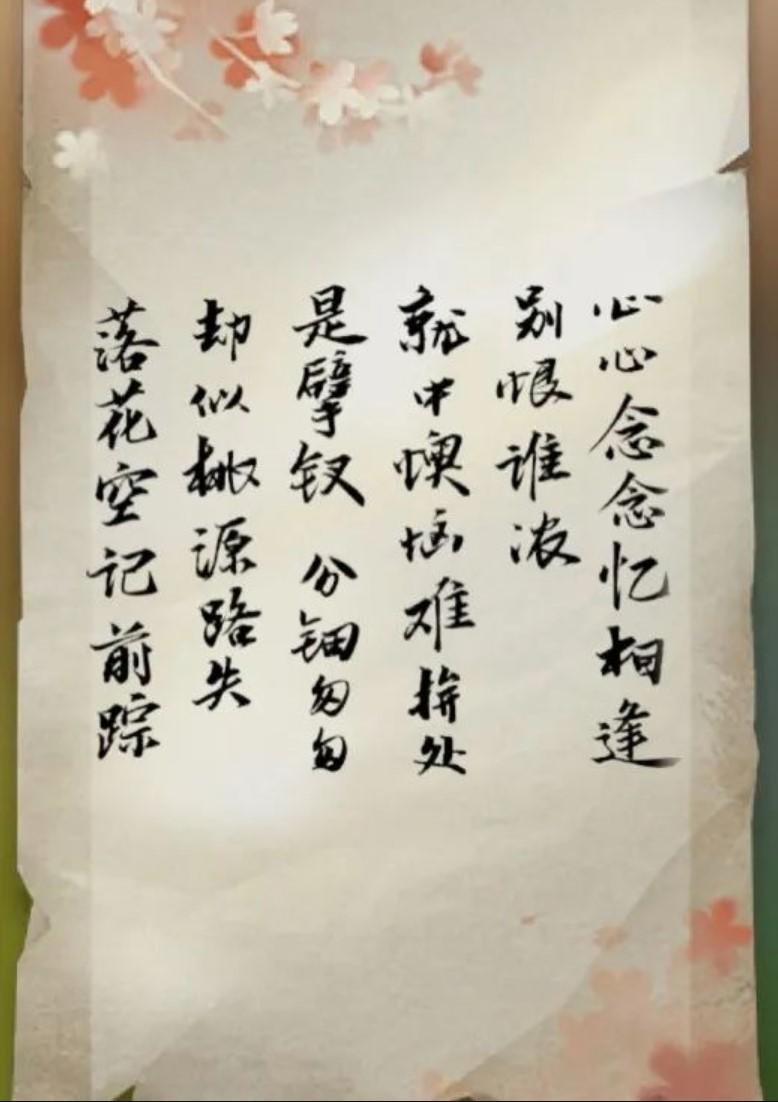 心心念念忆相逢
别恨谁浓
就中懊恼难拚处
是擘钗 分钿匆匆
却似桃源路失
落花空记前踪